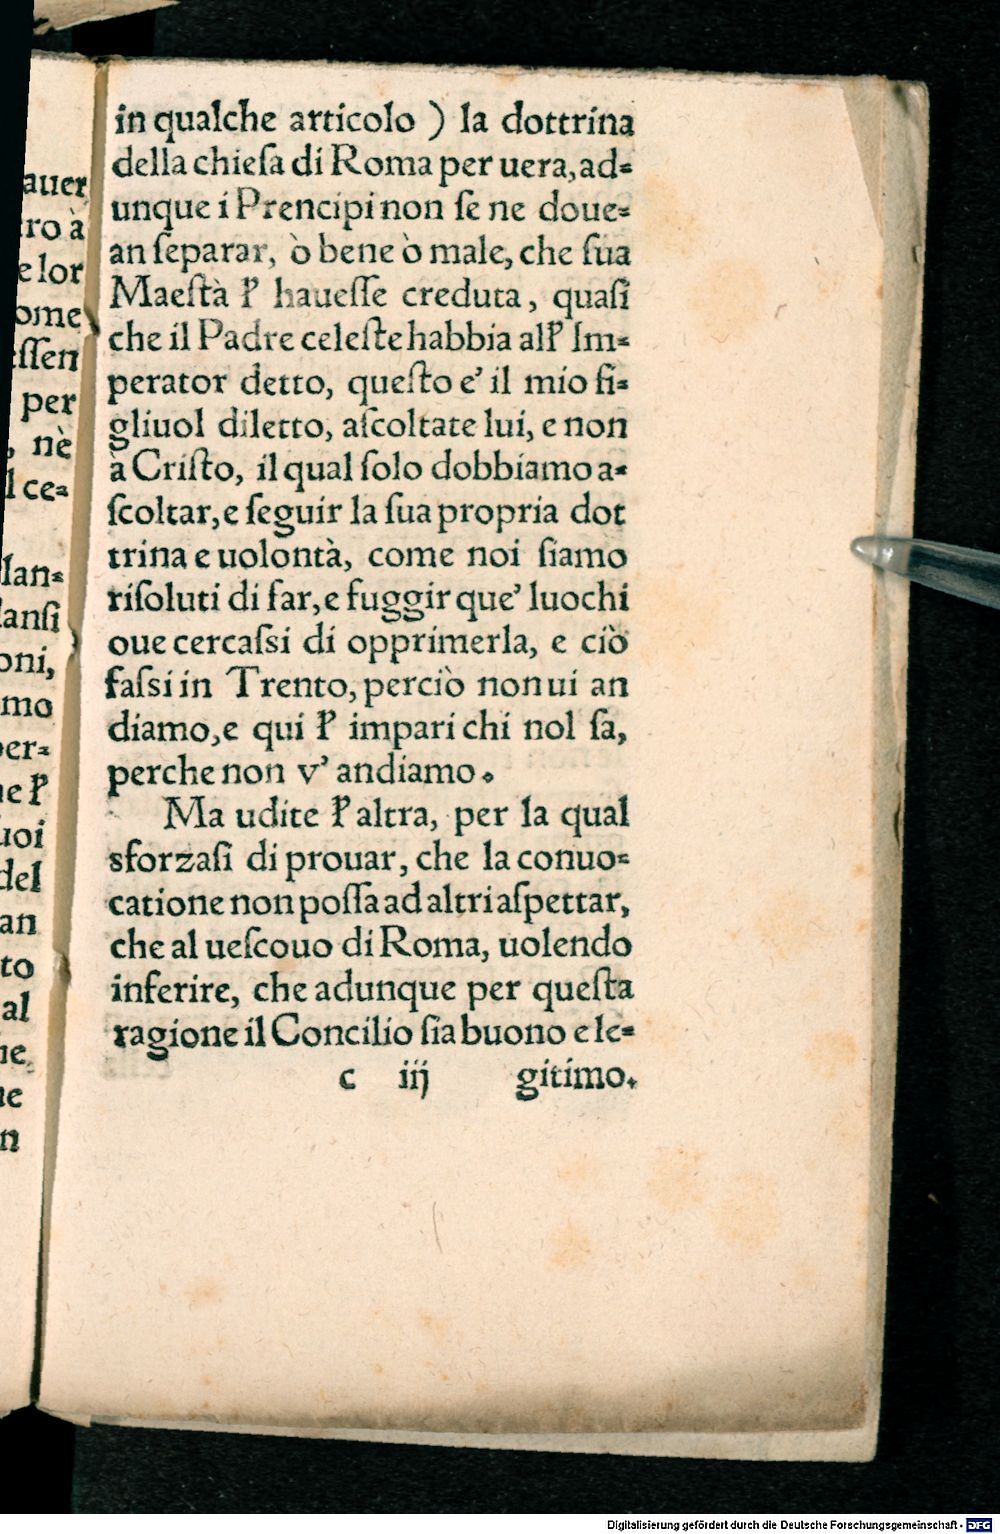 in qualche articolo ) la dottrina
della chieſa di Roma per uera, ad=
unque i Prencipi non ſe ne doue=
an ſeparar, ò bene ò male, che ſua
Maeſtà l' haueſſe creduta, quaſi
che il Padre celeſte habbia all' Im=
perator detto, queſto e' il mio fi=
gliuol diletto, aſcoltate lui, e non
à Criſto, il qual ſolo dobbiamo a=
ſcoltar, e ſeguir la ſua propria dot
trina e uolontà, come noi ſiamo
riſoluti di far, e fuggir que' luochi
oue cercaſsi di opprimerla, e ciò
faſsi in Trento, perciò non ui an
diamo, e qui l' impari chi nol ſa,
perche non v' andiamo.
Ma udite l' altra, per la qual
sforzaſi di prouar, che la conuo=
catione non poſſa ad altri aſpettar,
che al ueſcouo di Roma, uolendo
inferire, che adunque per queſta
ragione il Concilio ſia buono e le=
c iij gitimo.
auer
ro à
e lor
ome
eſſen
per
, nè
l ce=
lan=
lanſi
oni,
mo
per=
ne l'
uoi
del
an
to
al
ne
ue
n
Digitalisierung gefördert durch die Deutsche Forschungsgemeinschaft - DFG